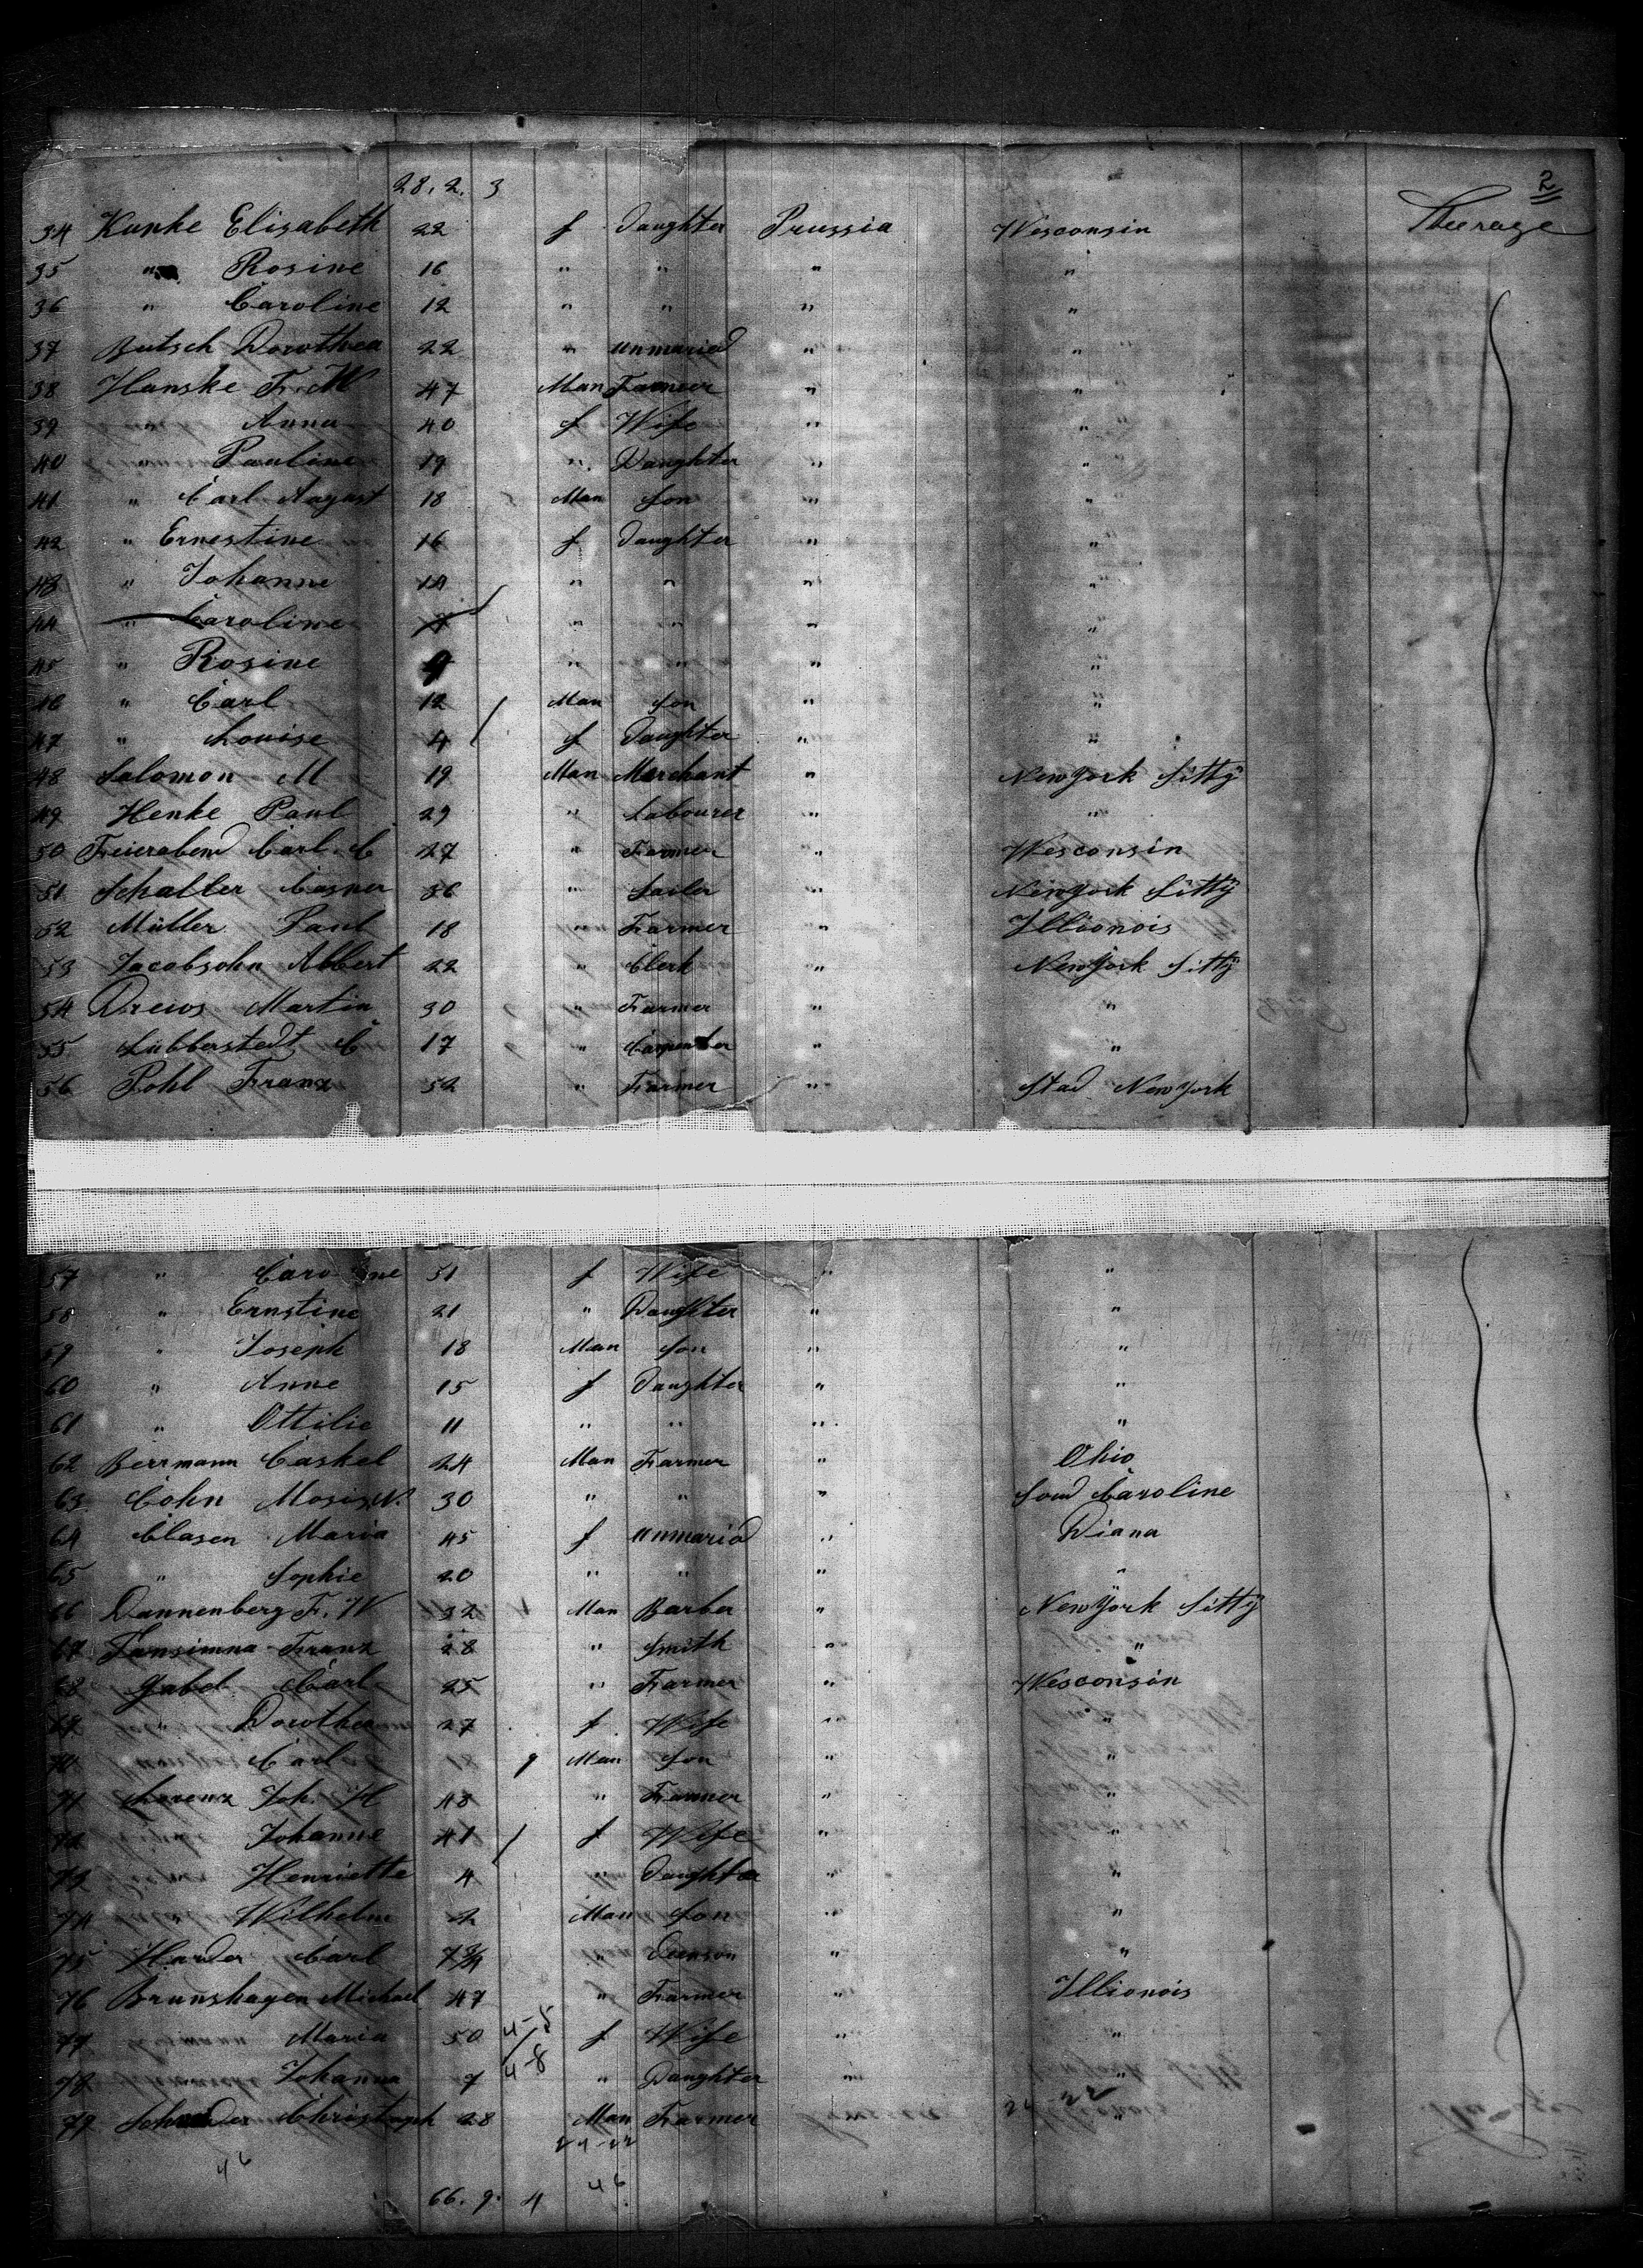 28. 2. 3
2
34 Kunke Elisabeth 22 f Daughter Prussia Wesconsin Steerage
35 " Rosine 16 " " " "
36 " Caroline 12 " " " "
37 Butsch Dorothea 22 " unmaried " "
38 Hanske Fr. W 47 Man Farmer " "
39 Anna 40 f Wife " "
40 " Pauline 19 " Daughter " "
41 " Carl August 18 Man Son " "
42 " Ernestine 16 f Daughter " "
43 " Johanne 14 " " " "
44 " Caroline " " " "
45 " Rosine 9 " " " "
46 " Carl 12 Man Son " "
47 " Louise 4 f Daughter " "
48 Salomon M 19 Man Merchant " New York Sitty
49 Henke Paul 29 " Labourer " "
50 Feierabend Carl C 27 " Farmer " Wesconsin
51 Schaller 36 " Sailer " New York Sitty
52 Müller Paul 18 " Farmer " Illionois
53 Jacobsohn Albert 22 " Clerk " New York Sitty
54 Drews Martin 30 " Farmer " "
55 Lübberstedt C 17 " Carpenter " "
56 Pohl Franz 52 " Farmer " Stad New York
57 " Caro ine 51 f Wife " "
58 " Ernstine 21 " Daughter " "
59 " Joseph 18 Man Son " "
60 " Anne 15 f Daughter " "
61 " Ottilie 11 " " " "
62 Berrmann Caskel 24 Man Farmer " Ohio
63 Cohn Moses N. 30 " " " Soud Caroline
64 Clasen Maria 45 f unmaried " Diana
65 " Sophie 20 " " " "
66 Dannenberg F. W 32 Man Barber " New York Sitty
67 Franz 28 " Smith " "
68 Gabel Carl 25 " Farmer " Wesconsin
69 " Dorothea 27 f Wife " "
70 " Carl 9 Man Son " "
71 Lorenz Joh. H 48 " Farmer " "
72 Johanne 41 f Wife " "
73 Henriette 4 " Daughter " "
74 " Wilhelm 2 Man Son " "
75 Harder Carl " " "
76 Brunshagen Michael 47 " Farmer " Illionois
77 Maria 50 f Wife " "
78 Johanna 7 " Daughter " "
79 Christoph 28 Man Farmer "
46
66. 9. 4
46